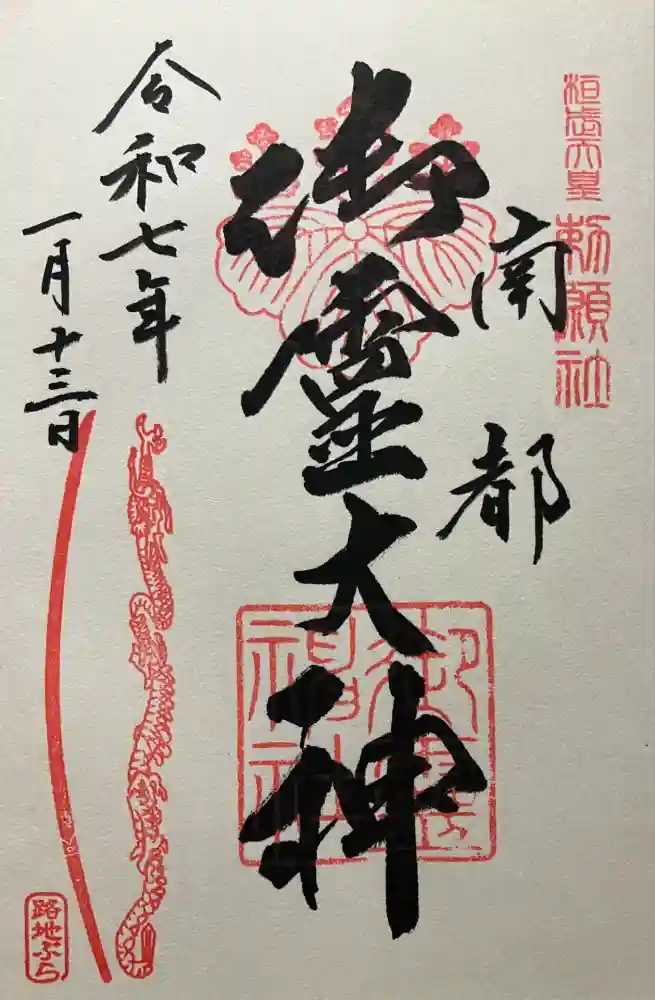 桓武天皇
勅願社
南都
御霊大神
御霊神社
令和七年
一月十三日
路地ぶら